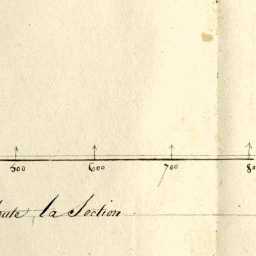 500 600 700
la Section